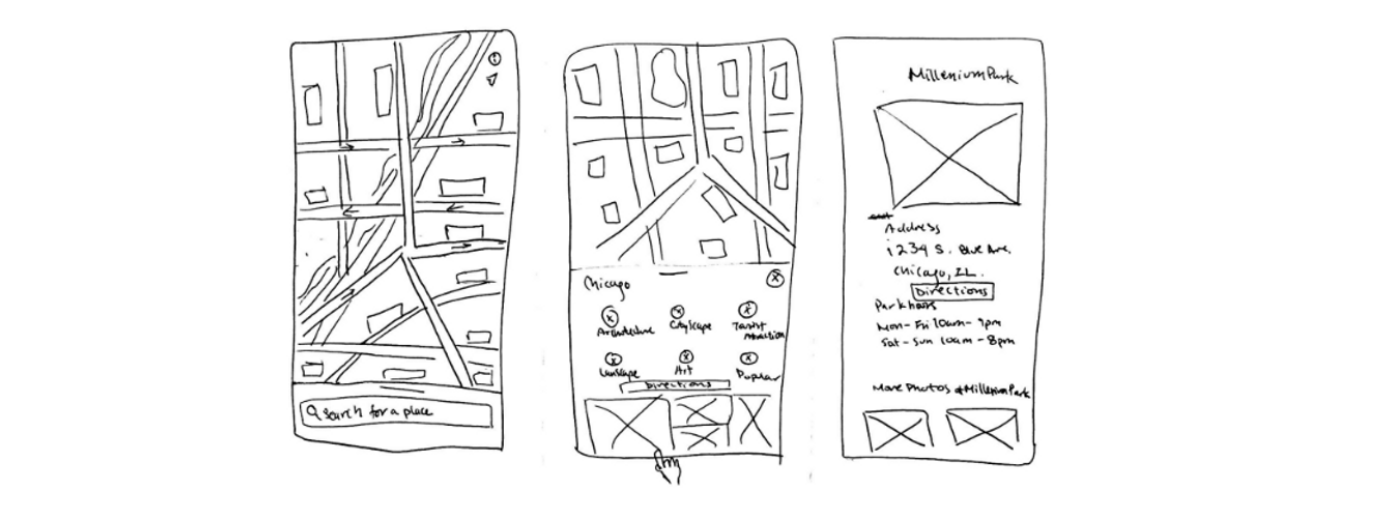 Search for a place
Chicago
Architecture
Cityscape
Tourist
Attraction
Lanscape
Art
Popular
Directions
Millenium Park
Address
1234 S. Blue Ave.
Chicago, IL.
Directions
Park hours
Mon - Fri 10am - 9pm
Sat - Sun 10am - 8pm
More Photos of Millenium Park